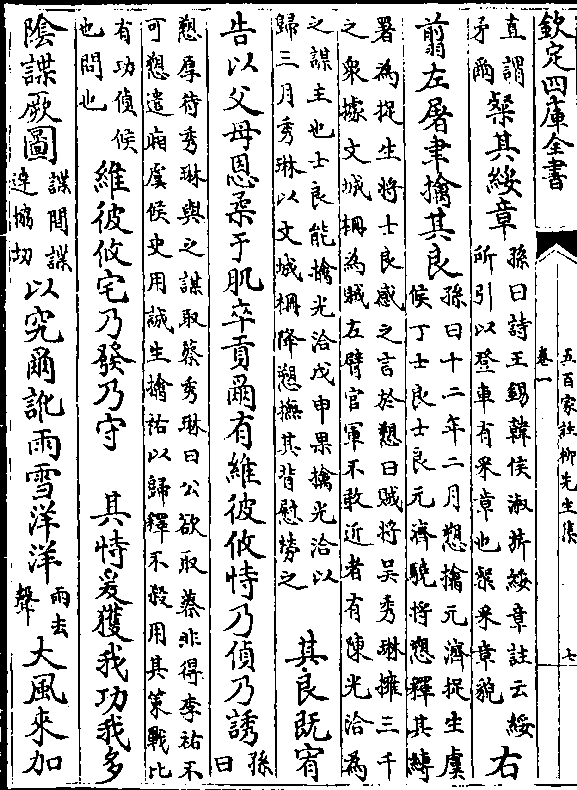 欽定四庫全書
五百家註柳先生集
卷一
七
直謂
矛爾
粲其綏章
孫曰詩王錫韓侯淑旂綏章註云綏
所引以登車有采章也粲采章貌
右
翦左屠聿擒其良
孫曰十二年二月愬擒元濟捉生虞
候丁士良士良元濟驍將愬釋其縛
署為捉生將士良感之言於愬曰賊將吳秀琳擁三千
之衆據文城柵為賊左臂官軍不敢近者有陳光洽為
之謀主也士良能擒光洽戊申果擒光洽以
歸三月秀琳以文城柵降愬撫其背慰勞之
其良既宥
告以父母恩柔于肌卒貢爾有維彼攸恃乃偵乃誘
孫
曰
愬厚待秀琳與之謀取蔡秀琳曰公欲取蔡非得李祐不
可愬遣廂虞候史用誠生擒祐以歸釋不殺用其策戰比
有功偵候
也問也
維彼攸宅乃發乃守　其恃爰獲我功我多
陰諜厥圖
諜間諜
達協切
以究爾訩雨雪洋洋
雨去
聲
大風來加